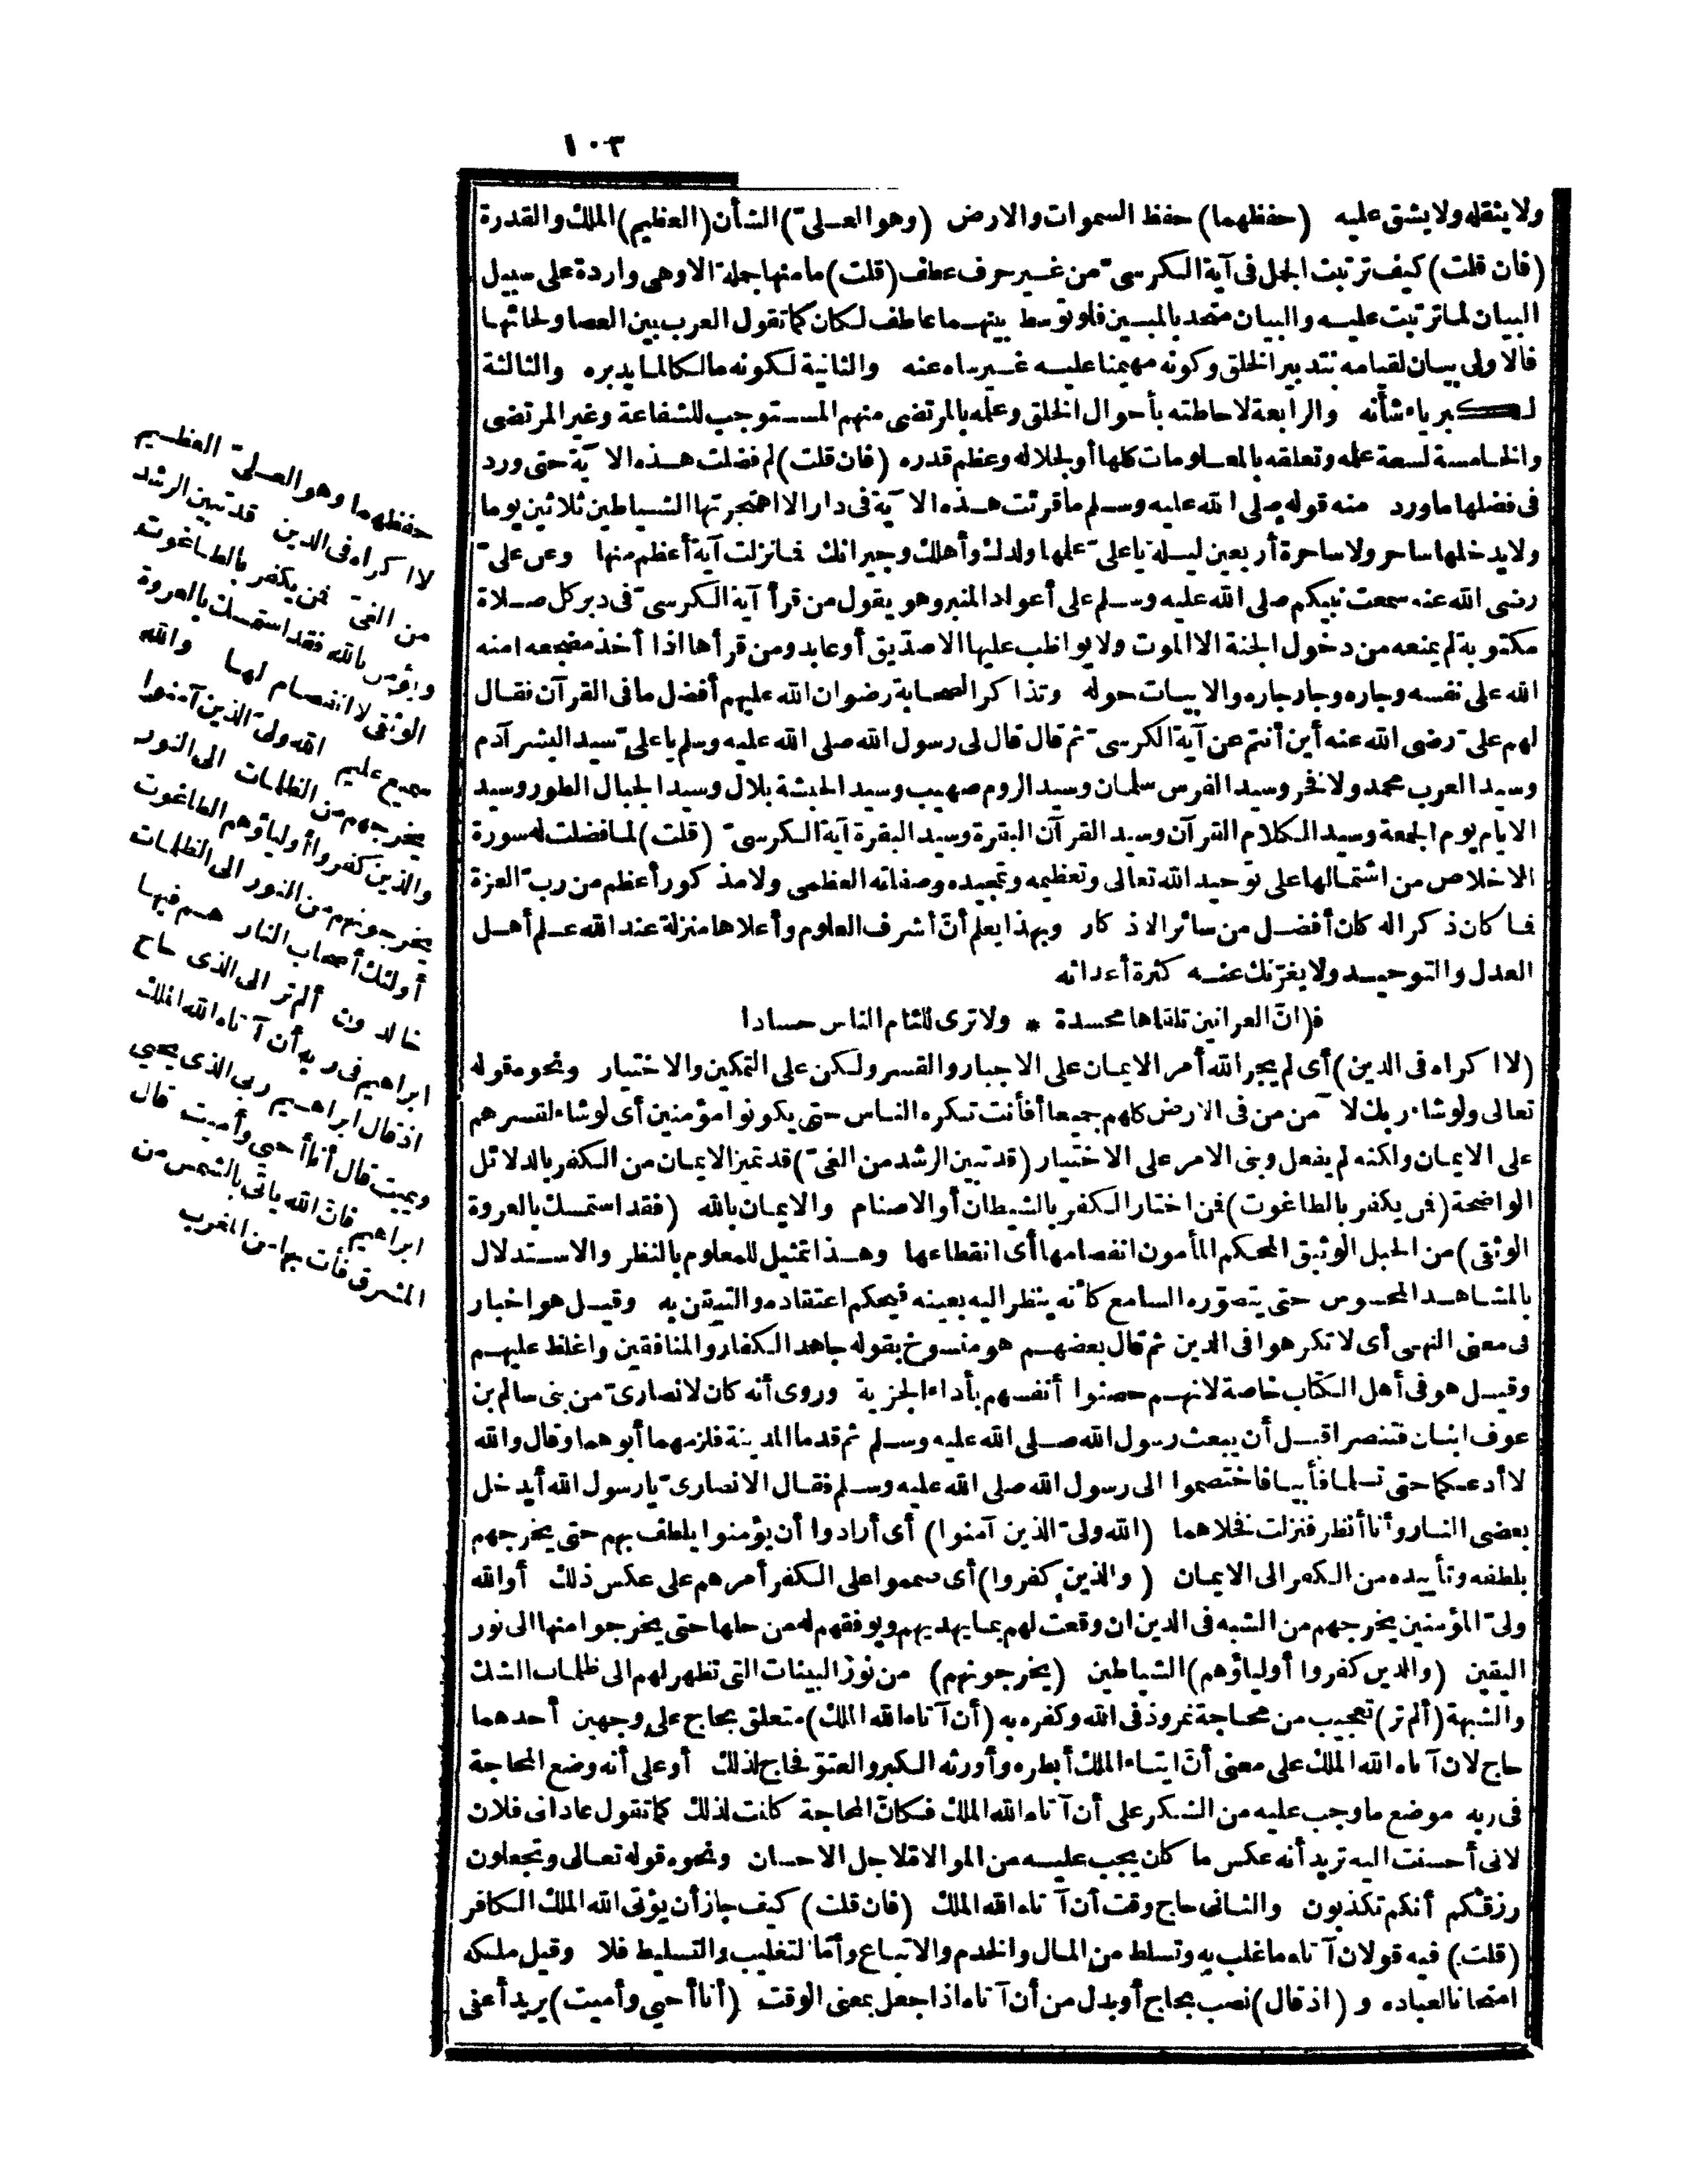 ١٠٣
ولا يثقله ولا يشق عليه (حفظهما) حفظ السموات والارض (وهو العلىّ) الشأن (العظيم) الملك والقدرة
(فان قلت) كيف ترتبت الجمل فى آية الكرسىّ من غير حرف عطف (قلت) ما منها جملة الا وهى واردة على سبيل
البيان لما ترتبت عليه والبيان متحد بالمبين فلو توسط بينهما عاطف لكان كما تقول العرب بين العصا ولحائها
فالاولى بيان لقيامه بتدبير الخلق وكونه مهيمنا عليه غير ساه عنه والثانية لكونه مالكا لما يدبره والثالثة
لكبرياء شأنه والرابعة لاحاطته بأحوال الخلق وعلمه بالمرتضى منهم المستوجب للشفاعة وغير المرتضى
والخامسة لسعة علمه وتعلقه بالمعلومات كلها أو لجلاله وعظم قدره (فان قلت) لم فضلت هذه الآية حتى ورد
فى فضلها ما ورد منه قوله صلى الله عليه وسلم ما قرئت هذه الآية فى دار الا اهتجرتها الشياطين ثلاثين يوما
ولا يدخلها ساحر ولا ساحرة أربعين ليلة يا علىّ علمها ولدك وأهلك وجيرانك فما نزلت آية أعظم منها وعن علىّ
رضى الله عنه سمعت نبيكم صلى الله عليه وسلم على أعواد المنبر وهو يقول من قرأ آية الكرسىّ فى دبر كل صلاة
مكتوبة لم يمنعه من دخول الجنة الا الموت ولا يواظب عليها الا صدّيق أو عابد ومن قرأها اذا أخذ مضجعه امنه
الله على نفسه وجاره وجار جاره والابيات حوله وتذاكر الصحابة رضوان الله عليهم أفضل ما فى القرآن فقال
لهم علىّ رضى الله عنه أين أنتم عن آية الكرسىّ ثم قال قال لى رسول الله صلى الله عليه وسلم يا علىّ سيد البشر آدم
وسيد العرب محمد ولا فخر وسيد الفرس سلمان وسيد الروم صهيب وسيد الحبشة بلال وسيد الجبال الطور وسيد
الايام يوم الجمعة وسيد الكلام القرآن وسيد القرآن البقرة وسيد البقرة آية الكرسىّ (قلت) لما فضلت له سورة
الاخلاص من اشتمالها على توحيد الله تعالى وتعظيمه وتمجيده وصفاته العظمى ولا مذكور أعظم من رب العزة
فما كان ذكرا له كان أفضل من سائر الاذكار وبهذا يعلم أنّ أشرف العلوم وأعلاها منزلة عند الله علم أهل
العدل والتوحيد ولا يغرّنك عنه كثرة أعدائه
فانّ العرانين تلقاها محسدة * ولا ترى للئام الناس حسادا
(لا اكراه فى الدين) أى لم يجر الله أمر الايمان على الاجبار والقسر ولكن على التمكين والاختيار ونحوه قوله
تعالى ولو شاء ربك لآمن من فى الارض كلهم جميعا أفأنت تكره الناس حتى يكونوا مؤمنين أى لو شاء لقسرهم
على الايمان ولكنه لم يفعل وبنى الامر على الاختيار (قد تبين الرشد من الغىّ) قد تميز الايمان من الكفر بالدلائل
الواضحة (فمن يكفر بالطاغوت) فمن اختار الكفر بالشيطان أو الاصنام والايمان بالله (فقد استمسك بالعروة
الوثقى) من الحبل الوثيق المحكم المأمون انفصامها أى انقطاعها وهذا تمثيل للمعلوم بالنظر والاستدلال
بالمشاهد المحسوس حتى يتصوّره السامع كأنه ينظر اليه بعينه فيحكم اعتقاده والتيقن به وقيل هو اخبار
فى معنى النهى أى لا تكرهوا فى الدين ثم قال بعضهم هو منسوخ بقوله جاهد الكفار والمنافقين واغلظ عليهم
وقيل هو فى أهل الكتاب خاصة لانهم حصنوا أنفسهم بأداء الجزية وروى أنه كان لانصارىّ من بنى سالم بن
عوف ابنان فتنصرا قبل أن يبعث رسول الله صلى الله عليه وسلم ثم قدما المدينة فلزمهما أبوهما وقال والله
لا أدعكما حتى تسلما فأبيا فاختصموا الى رسول الله صلى الله عليه وسلم فقال الانصارىّ يا رسول الله أيدخل
بعضى النار وأنا أنظر فنزلت فخلاهما (الله ولىّ الذين آمنوا) أى أرادوا أن يؤمنوا يلطف بهم حتى يخرجهم
بلطفه وتأييده من الكفر الى الايمان (والذين كفروا) أى صمموا على الكفر أمرهم على عكس ذلك أو الله
ولىّ المؤمنين يخرجهم من الشبه فى الدين ان وقعت لهم بما يهديهم ويوفقهم له من حلها حتى يخرجوا منها الى نور
اليقين (والذين كفروا أولياؤهم) الشياطين (يخرجونهم) من نور البينات التى تظهر لهم الى ظلمات الشك
والشبهة (ألم تر) تعجيب من محاجة نمروذ فى الله وكفره به (أن آتاه الله الملك) متعلق بحاج على وجهين أحدهما
حاج لان آتاه الله الملك على معنى أنّ ايتاء الملك أبطره وأورثه الكبر والعتوّ فحاج لذلك أو على أنه وضع المحاجة
فى ربه موضع ما وجب عليه من الشكر على أن آتاه الله الملك فكانّ المحاجة كانت لذلك كما تقول عادانى فلان
لانى أحسنت اليه تريد أنه عكس ما كان يجب عليه من الموالاة لاجل الاحسان ونحوه قوله تعالى وتجعلون
رزقكم أنكم تكذبون والثانى حاج وقت أن آتاه الله الملك (فان قلت) كيف جاز أن يؤتى الله الملك الكافر
(قلت) فيه قولان آتاه ما غلب به وتسلط من المال والخدم والاتباع وأمّا التغليب والتسليط فلا وقيل ملكه
امتحانا لعباده و (اذ قال) نصب بحاج أو بدل من أن آتاه اذا جعل بمعنى الوقت (أنا أحيى وأميت) يريد أعنى
حفظهما وهو العلىّ العظيم
لا اكراه فى الدين قد تبين الرشد
من الغىّ فمن يكفر بالطاغوت
ويؤمن بالله فقد استمسك بالعروة
الوثقى لا انفصام لها والله
سميع عليم الله ولىّ الذين آمنوا
يخرجهم من الظلمات الى النور
والذين كفروا أولياؤهم الطاغوت
يخرجونهم من النور الى الظلمات
أولئك أصحاب النار هم فيها
خالدون ألم تر الى الذى حاج
ابراهيم فى ربه أن آتاه الله الملك
اذ قال ابراهيم ربى الذى يحيى
ويميت قال أنا أحيى وأميت قال
ابراهيم فانّ الله يأتى بالشمس من
المشرق فأت بها من المغرب